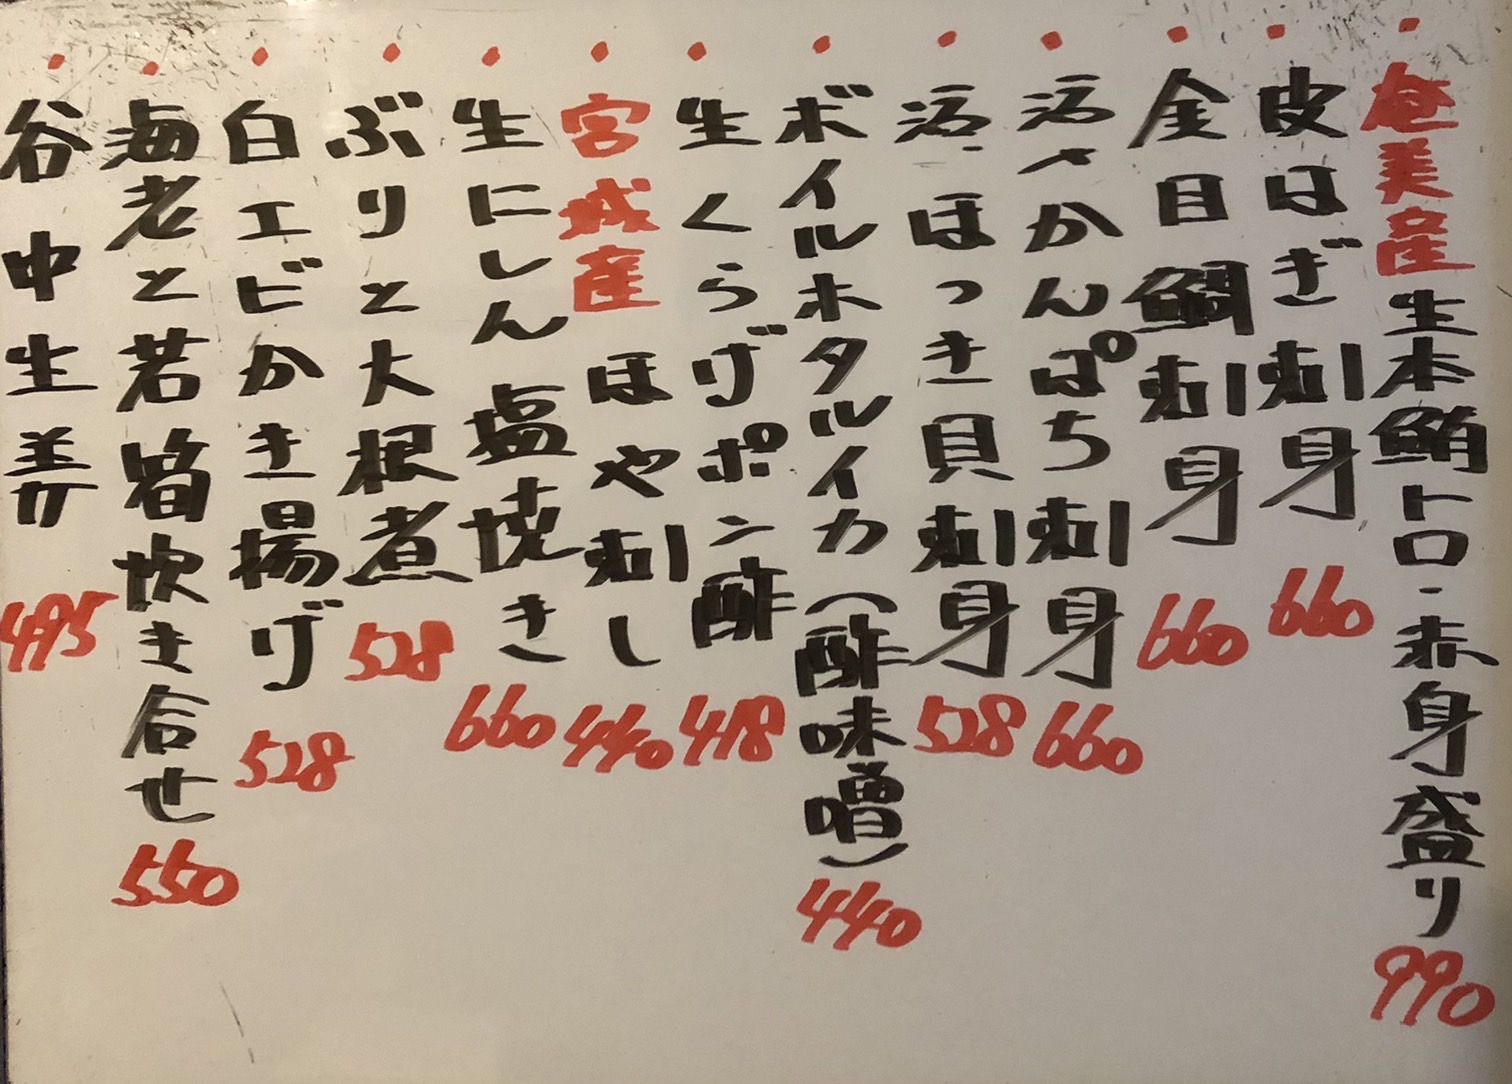 奄美産生本鮪トロ・赤身盛り 990
皮はぎ刺身 660
金目鯛刺身 660
活〆かんぱち刺身 660
活・ほっき貝刺身 528
ボイルホタルイカ(酢味噌) 440
生くらげポン酢 418
宮城産 ほや刺し 440
生にしん塩焼き 660
ぶりと大根煮 528
白エビかき揚げ 528
海老と若筍炊き合せ 550
谷中生姜 495